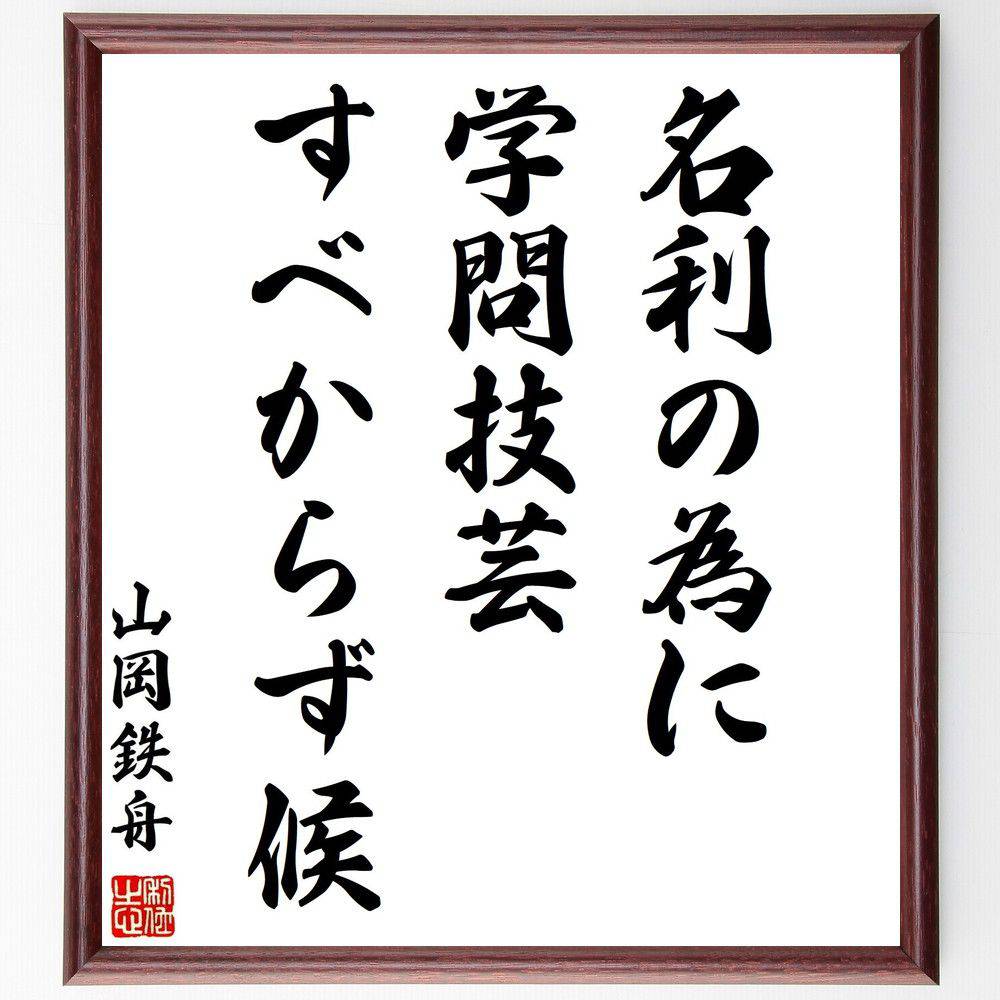 名利の為に
学問技芸
すべからず候
山岡鉄舟